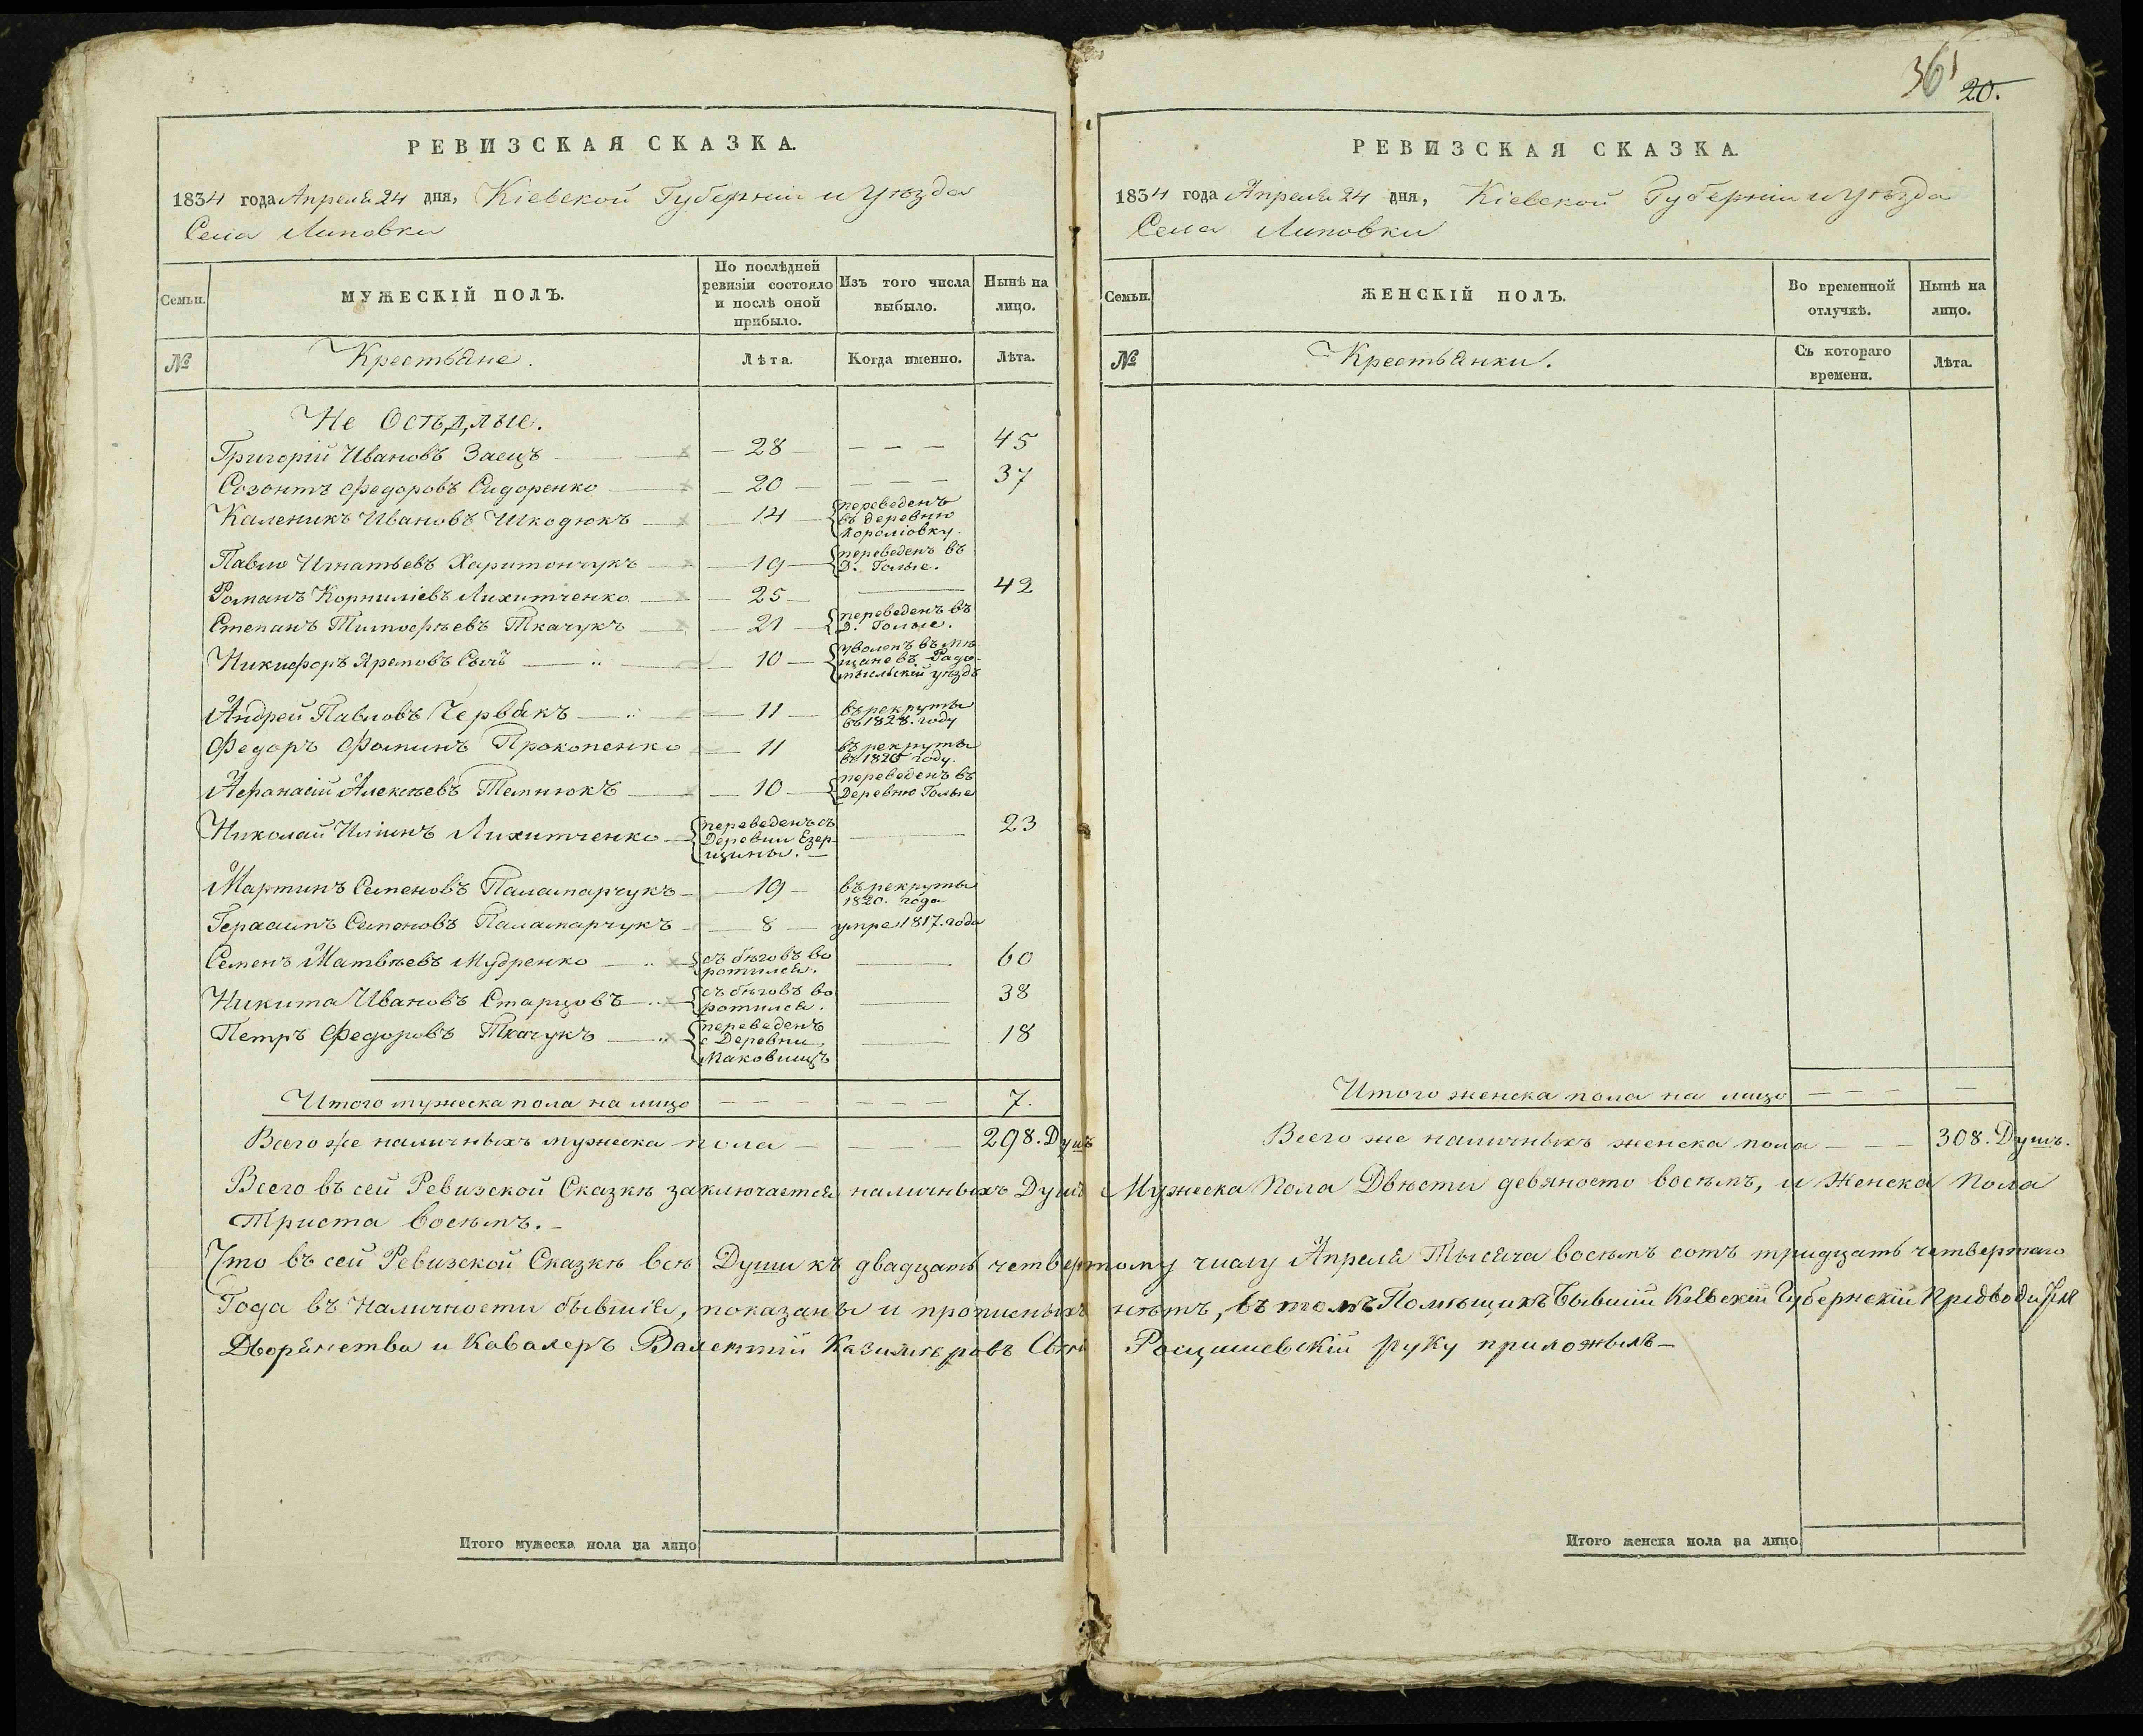 РЕВИЗСКАЯ СКАЗКА.
1834 года Апреля 24 дня, Кіевской Губерніи и Уѣзда
Села Липовки
Семьи.
МУЖЕСКІЙ ПОЛЪ.
По послѣдней ревизіи состояло и послѣ оной прибыло.
Изъ того числа выбыло.
Нынѣ на лицо.
№
Крестьяне.
Лѣта.
Когда именно.
Лѣта.
Не Осѣдлые.
Григорій Ивановъ Заецъ — 28 — — — — 45
Созонтъ Федоровъ Сидоренко — 20 — — — — 37
Каленикъ Ивановъ Шкодюкъ — 14 — переведенъ
въ деревню
Королíовку.
Павло Игнатьевъ Харитончукъ — 19 — переведенъ въ
Д. Голые.
Романъ Корниліевъ Лихитченко — 25 — — 42
Степанъ Тимофѣевъ Ткачукъ — 21 — переведенъ въ
Д. Голые.
Никифоръ Яремовъ Сычь — 10 — уволенъ въ мѣ
щане въ Радо-
мысльскій уѣздъ
Андрей Павловъ Червякъ — 11 — въ рекруты
въ 1828. году
Федоръ Фоминъ Прокопенко — 11 въ рекруты
въ 1825 году.
Афанасій Алексѣевъ Темнюкъ — 10 — переведенъ въ
Деревню Голые
Николай Илінъ Лихитченко — переведенъ съ
Деревни Езер-
щины. — — 23
Мартинъ Семеновъ Паламарчукъ — 19 — въ рекруты
1820. года
Герасимъ Семеновъ Паламарчукъ — 8 — умре 1817. года
Семенъ Матвѣевъ Мудренко — съ бѣговъ во
ротился. — 60
Никита Ивановъ Старцовъ — съ бѣговъ во
ротился. — 38
Петръ Федоровъ Ткачукъ — переведенъ
с Деревни
Маковищъ — 18
Итого мужеска пола на лицо — — — — — — 7.
Всего же наличныхъ мужеска пола — — — — 298. Душъ
361
20.
РЕВИЗСКАЯ СКАЗКА.
1834 года Апреля 24 дня, Кіевской Губерніи и Уѣзда
Села Липовки
Семьи.
ЖЕНСКІЙ ПОЛЪ.
Во временной отлучкѣ.
Нынѣ на лицо.
№
Крестьянки.
Съ котораго времени.
Лѣта.
Итого женска пола на лицо — — — —
Всего же наличныхъ женска пола — — — 308. Душъ.
Всего въ сей Ревизской Сказкѣ заключается наличныхъ Душъ Мужеска Пола Двѣсти девяносто восѣмъ, и Женска Пола
Триста восѣмъ. —
Что въ сей Ревизской Сказкѣ всѣ Души къ двадцать четвертому числу Апреля Тысяча восѣмъ сотъ тридцать четвертаго
Года въ Наличности бывшія, показаны и прописныхъ нѣтъ, въ томъ Помѣщикъ Бывшій Кіевскій Губернскій Предводитель
Дворянства и Кавалеръ Валентій Казимѣровъ Сынъ Росцишевскій руку приложылъ —
Итого мужеска пола на лицо
Итого женска пола на лицо